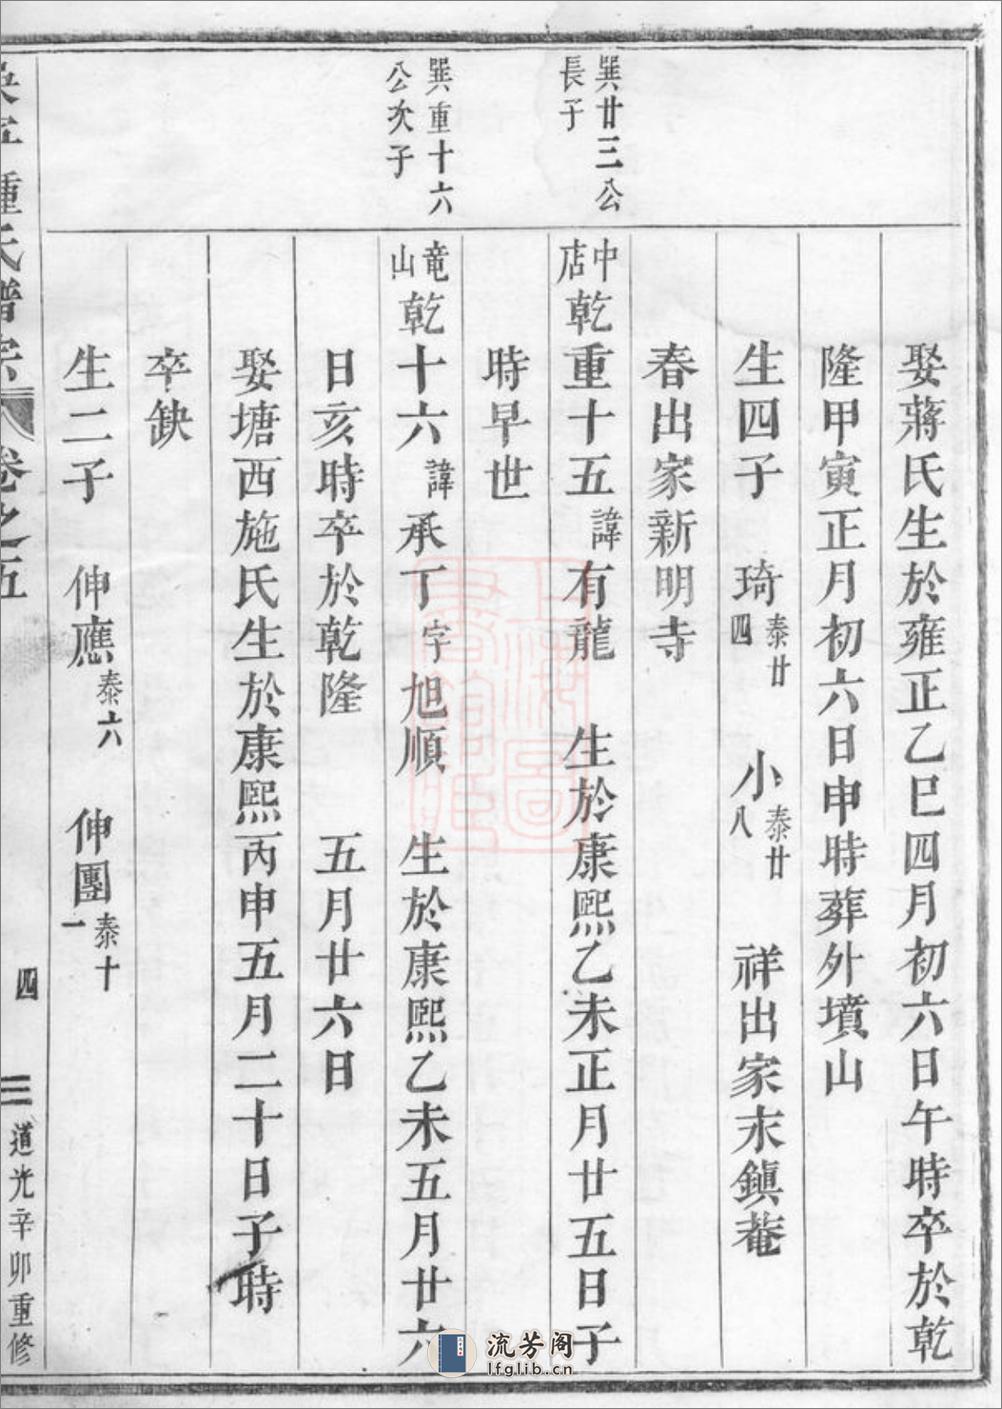 娶蔣氏生於雍正乙巳四月初六日午時卒於乾
隆甲寅正月初六日申時葬外墳山
生四子 琦泰廿四 小泰廿八 祥出家末鎮菴
春出家新明寺
巽廿三公
長子
中店乾重十五諱有龍 生於康熙乙未正月廿五日子
時早世
巽重十六
公次子
竜山乾十六諱承丁字旭順 生於康熙乙未五月廿六
日亥時卒於乾隆 五月廿六日
娶塘西施氏生於康熙丙申五月二十日子時
卒缺
生二子 伸應泰六 伸團泰十一
鍾氏譜宗 卷之五 四 道光辛卯重修
流芳阁
lfglib.cn